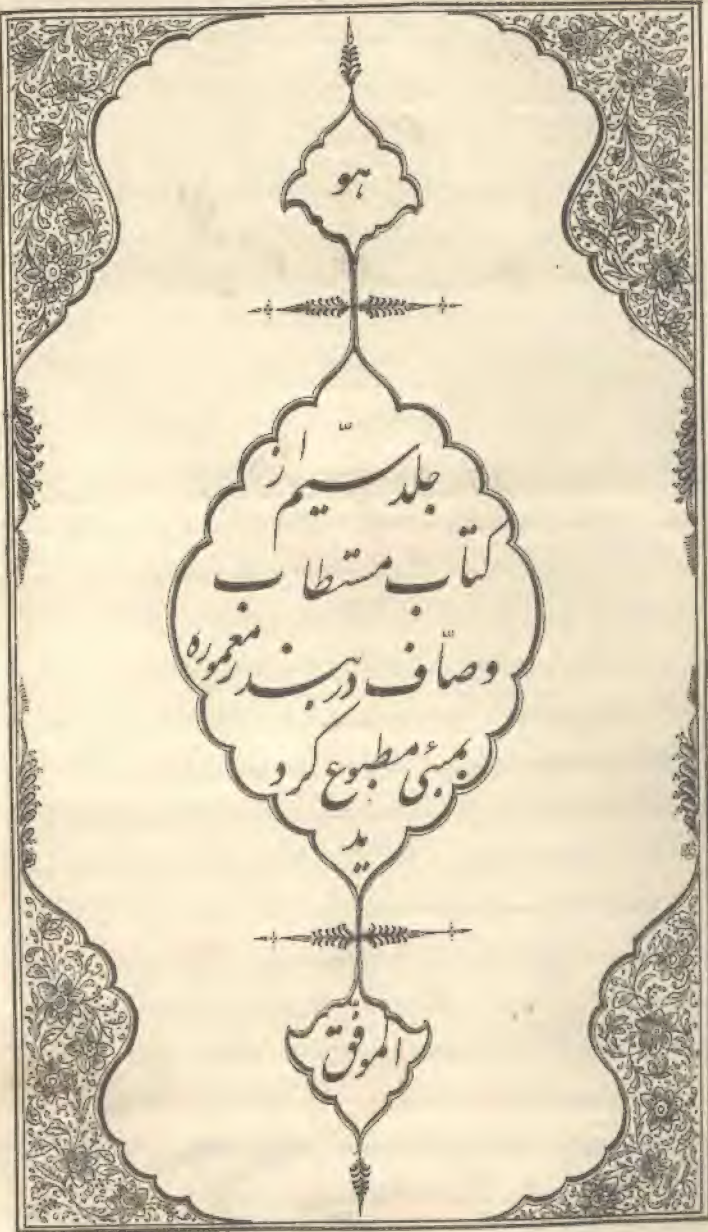 هو
جلد سیّم از
کتاب مستطاب
وصّاف در بندر معموره
بمبئی مطبوع گرد
ید
الموفّق